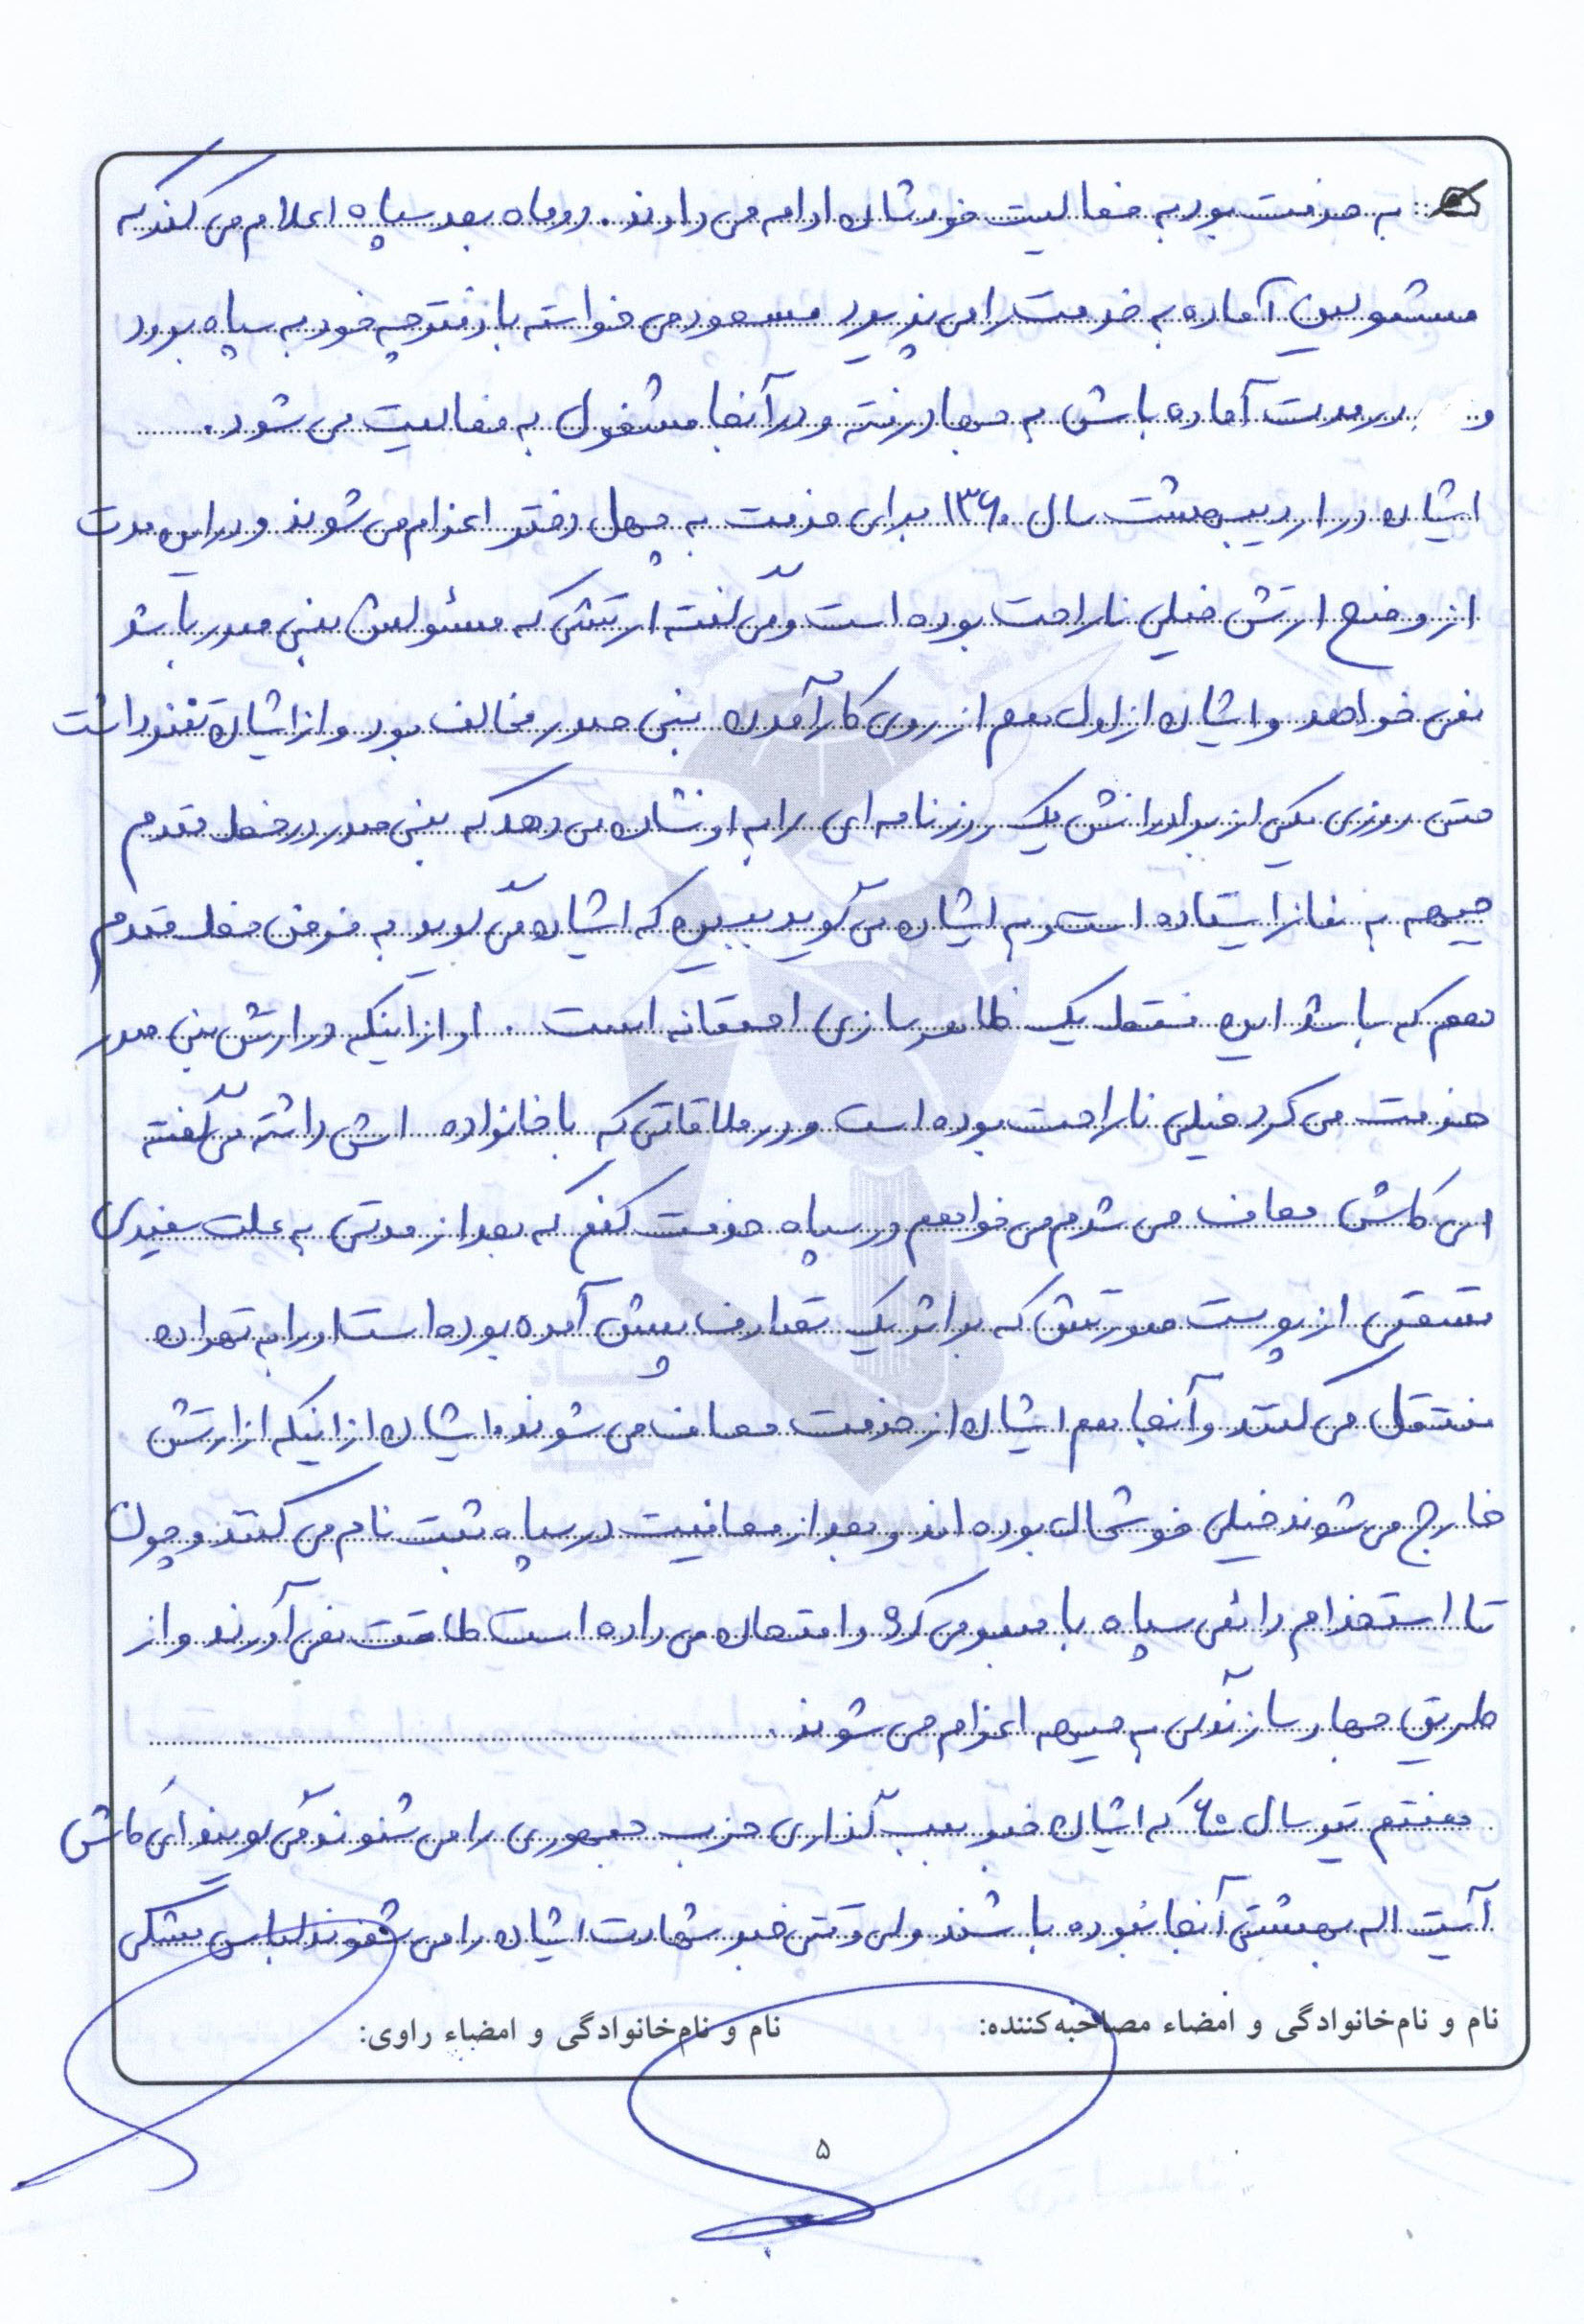 به خدمت بود به فعالیت خودشان ادامه می دادند. دو ماه بعد سپاه اعلام می کند که
مشمولین آماده به خدمت را می پذیرد مسعود می خواسته با دفترچه خود به سپاه برود
و در مدت آماده باش به جهاد رفته و در آنجا مشغول به فعالیت می شود.
ایشان در اردیبهشت سال ۱۳۶۰ برای خدمت به چهل دختر اعزام می شوند و در این مدت
از وضع ارتش خیلی ناراحت بوده است و می گفته ارتشی که مسئولش بنی صدر باشد
نمی خواهد و ایشان از اول هم از روی کار آمدن بنی صدر مخالف بود و از ایشان تنفر داشت
حتی روزی یکی از برادرانش یک روزنامه ای را به او نشان می دهد که بنی صدر در خط مقدم
جبهه به نماز ایستاده است و به ایشان می گوید ببین که ایشان می گوید به فرض خط مقدم
هم که باشد این فقط یک ظاهر سازی احمقانه است. او از اینکه در ارتش بنی صدر
خدمت می کرد خیلی ناراحت بوده است و در ملاقاتی که با خانواده اش داشته می گفته
ای کاش معاف می شدم می خواهم در سپاه خدمت کنم که بعد از مدتی به علت سفیدی
قسمتی از پوست صورتش که بر اثر یک تصادف پیش آمده بوده است او را به تهران
منتقل می کنند و آنجا هم ایشان از خدمت معاف می شوند و ایشان از اینکه از ارتش
خارج می شوند خیلی خوشحال بوده اند و بعد از معافیت در سپاه ثبت نام می کنند و چون
تا استخدام دائمی سپاه باید صبر می کرد و امتحان می داده است طاقت نمی آورند و از
طریق جهاد سازندگی به جبهه اعزام می شوند.
هفتم تیر سال ۶۰ که ایشان خبر بمب گذاری حزب جمهوری را می شنوند می گویند ای کاش
آیت اله بهشتی آنجا نبوده باشند ولی وقتی خبر شهادت ایشان را می شنوند لباس مشکی
نام و نام‌خانوادگی و امضاء مصاحبه‌کننده: نام و نام‌خانوادگی و امضاء راوی:
۵